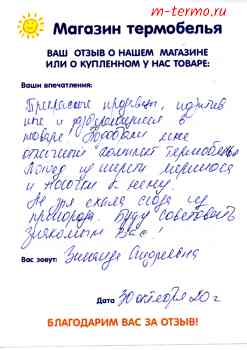 m-termo.ru
Магазин термобелья
ВАШ ОТЗЫВ О НАШЕМ МАГАЗИНЕ
ИЛИ О КУПЛЕННОМ У НАС ТОВАРЕ:
Ваши впечатления:
Прекрасные продавцы, позитив
ные и разбирающиеся в
товаре. Подобрали мне
отличный комплект термобелья
из шерсти мериноса
и носочки к нему.
Не зря ехала сюда из
пригорода. Буду советовать
знакомым Вас!
Вас зовут: Зинаида Андреевна
Дата 30 октября 20 г
БЛАГОДАРИМ ВАС ЗА ОТЗЫВ!